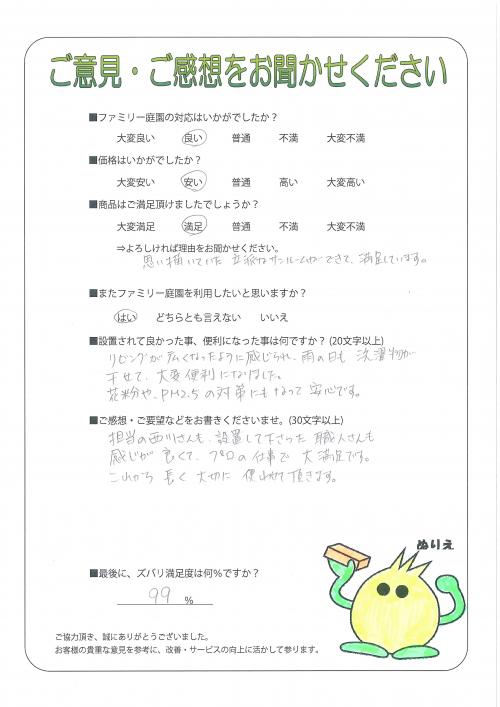 ご意見・ご感想をお聞かせください
■ファミリー庭園の対応はいかがでしたか？
大変良い　良い　普通　不満　大変不満
■価格はいかがでしたか？
大変安い　安い　普通　高い　大変高い
■商品はご満足頂けましたでしょうか？
大変満足　満足　普通　不満　大変不満
⇒よろしければ理由をお聞かせください。
思い描いていた 立派なサンルームができて、満足しています。
■またファミリー庭園を利用したいと思いますか？
はい　どちらとも言えない　いいえ
■設置されて良かった事、便利になった事は何ですか？ (20文字以上)
リビングが広くなったように感じられ、雨の日も 洗濯物が
干せて、大変便利になりました。
花粉や、PM2.5の対策にもなって安心です。
■ご感想・ご要望などをお書きくださいませ。(30文字以上)
担当の西川さんも、設置して下さった 職人さんも
感じが 良くて、プロの仕事で 大満足です。
これから 長く 大切に 使わせて頂きます。
ぬりえ
■最後に、ズバリ満足度は何％ですか？
99 ％
ご協力頂き、誠にありがとうございました。
お客様の貴重な意見を参考に、改善・サービスの向上に活かして参ります。